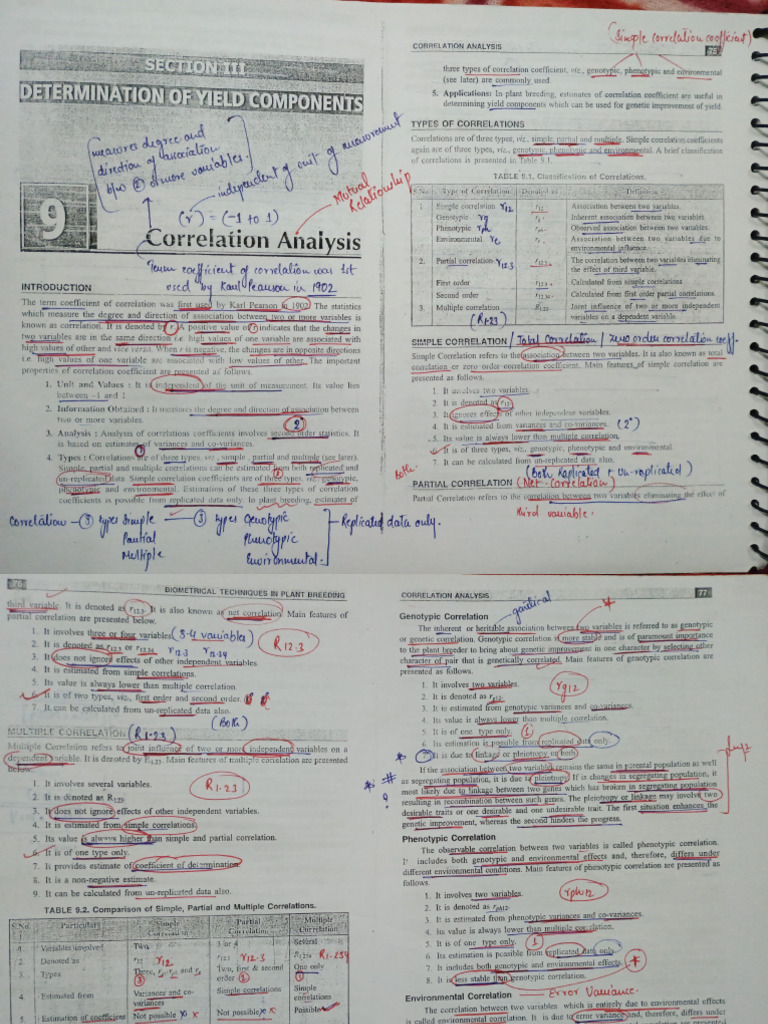 SECTION III
DETERMINATION OF YIELD COMPONENTS
measures degree and
direction of association
b/w ② or more variables.
independent of unit of measurement
(r) = (-1 to 1)
Mutual
Relationship
9
Correlation Analysis
Term coefficient of correlation was 1st
used by Karl Pearson in 1902
INTRODUCTION
The term coefficient of correlation was first used by Karl Pearson in 1902. The statistics
which measure the degree and direction of association between two or more variables is
known as correlation. It is denoted by r. A positive value of r indicates that the changes in
two variables are in the same direction i.e. high values of one variable are associated with
high values of other and vice versa. When r is negative, the changes are in opposite directions
i.e. high values of one variable are associated with low values of other. The important
properties of correlation coefficient are presented as follows.
1. Unit and Values : It is independent of the unit of measurement. Its value lies
between -1 and 1
2. Information Obtained : It measures the degree and direction of association between
two or more variables.
2
3. Analysis : Analysis of correlations coefficients involves second order statistics. It
is based on estimates of variances and co-variances.
4. Types : Correlations are of three types, viz., simple, partial and multiple (see later).
Simple, partial and multiple correlations can be estimated from both replicated and
un-replicated data. Simple correlation coefficients are of three types, viz., genotypic,
phenotypic and environmental. Estimation of these three types of correlation
coefficients is possible from replicated data only. In plant breeding, estimates of
Correlation - ③ types Simple - ③ types Genotypic
Partial Phenotypic - Replicated data only.
Multiple Environmental.
(Simple correlation coefficient)
CORRELATION ANALYSIS
75
three types of correlation coefficient, viz., genotypic, phenotypic and environmental
(see later) are commonly used.
5. Applications: In plant breeding, estimates of correlation coefficient are useful in
determining yield components which can be used for genetic improvement of yield.
TYPES OF CORRELATIONS
Correlations are of three types, viz., simple, partial and multiple. Simple correlation coefficients
again are of three types, viz., genotypic, phenotypic and environmental. A brief classification
of correlations is presented in Table 9.1.
TABLE 9.1. Classification of Correlations.
S.No. Type of Correlation Denoted as Definition
1. Simple correlation r12 r12 Association between two variables.
Genotypic rg Inherent association between two variables.
Phenotypic rph Observed association between two variables.
Environmental re Association between two variables due to
environmental influence.
2. Partial correlation r12.3 r12.3 The correlation between two variables eliminating
the effect of third variable.
First order r12.3 Calculated from simple correlations
Second order r12.34 Calculated from first order partial correlations.
3. Multiple correlation Joint influence of two or more independent
(R1.23) variables on a dependent variable.
SIMPLE CORRELATION / Total Correlation / zero order correlation coeff.
Simple Correlation refers to the association between two variables. It is also known as total
correlation or zero order correlation coefficient. Main features of simple correlation are
presented as follows.
1. It involves two variables.
2. It is denoted as r12.
3. It ignores effects of other independent variables.
4. It is estimated from variances and co-variances. (2°)
5. Its value is always lower than multiple correlation,
6. It is of three types, viz., genotypic, phenotypic and environmental.
Both
7. It can be calculated from un-replicated data also.
(Both Replicated + Un-replicated)
PARTIAL CORRELATION (Net-Correlation)
Partial Correlation refers to the correlation between two variables eliminating the effect of
third variable.
76
BIOMETRICAL TECHNIQUES IN PLANT BREEDING
third variable. It is denoted as r12.3. It is also known as net correlation. Main features of
partial correlation are presented below.
1. It involves three or four variables. (3-4 variables)
2. It is denoted as r12.3 or r12.34
r12.3 r12.34
R12.3
3. It does not ignore effects of other independent variables.
4. It is estimated from simple correlations.
5. Its value is always lower than multiple correlation.
6. It is of two types, viz., first order and second order.
7. It can be calculated from un-replicated data also.
(Both)
MULTIPLE CORRELATION (R1.23)
Multiple Correlation refers to joint influence of two or more independent variables on a
dependent variable. It is denoted by R1.23. Main features of multiple correlation are presented
below.
1. It involves several variables.
R1.23
2. It is denoted as R1.23.
3. It does not ignore effects of other independent variables.
4. It is estimated from simple correlations.
5. Its value is always higher than simple and partial correlation.
6. It is of one type only.
7. It provides estimate of coefficient of determination.
8. It is a non-negative estimate.
9. It can be calculated from un-replicated data also.
TABLE 9.2. Comparison of Simple, Partial and Multiple Correlations.
S.No. Particulars Simple Correlation Partial Correlation Multiple Correlation
1. Variables involved Two 3 or 4 Several
2. Denoted as r12 r12 r12.3 r12.3 R1.234
3. Types Three, Two, first & second order ② One only ①
4. Estimated from Variances and co-variances Simple correlations Simple correlations
5. Estimation of coefficient Not possible Not possible Possible
CORRELATION ANALYSIS
77
Genotypic Correlation
genetical
The inherent or heritable association between two variables is referred to as genotypic
or genetic correlation. Genotypic correlation is more stable and is of paramount importance
to the plant breeder to bring about genetic improvement in one character by selecting other
character of pair that is genetically correlated. Main features of genotypic correlation are
presented as follows.
1. It involves two variables.
2. It is denoted as
rg12
3. It is estimated from genotypic variances and co-variances.
4. Its value is always lower than multiple correlation.
5. It is of one type only. ①
6. Its estimation is possible from replicated data only.
7. It is due to linkage or pleiotropy or both.
If the association between two variables remains the same in parental population as well
as segregating population, it is due to pleiotropy. If in changes in segregating population, it
most likely due to linkage between two genes which has broken in segregating population
resulting in recombination between such genes. The pleiotropy or linkage may involve two
desirable traits or one desirable and one undesirable trait. The first situation enhances the
genetic improvement, whereas the second hinders the progress.
Phenotypic Correlation
The observable correlation between two variables is called phenotypic correlation.
It includes both genotypic and environmental effects and, therefore, differs under
different environmental conditions. Main features of phenotypic correlation are presented as
follows.
1. It involves two variables.
rph12
2. It is denoted as rph12.
3. It is estimated from phenotypic variances and co-variances.
4. Its value is always lower than multiple correlation.
5. It is of one type only. ①
6. Its estimation is possible from replicated data only.
7. It includes both genotypic and environmental effects.
8. It is less stable than genotypic correlation.
Environmental Correlation
Error Variance.
The correlation between two variables which is entirely due to environmental effects
is called environmental correlation. It is due to error variance and, therefore, differs under